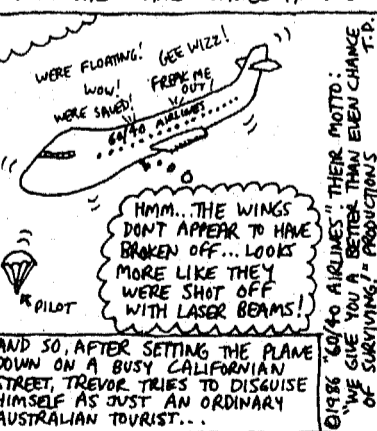 WERE FLOATING!
WOW!
WERE SAVED!
GEE WIZZ!
FREAK ME
OUT!
60/40 AIRLINES
HMM...THE WINGS
DONT APPEAR TO HAVE
BROKEN OFF...LOOKS
MORE LIKE THEY
WERE SHOT OFF
WITH LASER BEAMS!
PILOT
AND SO, AFTER SETTING THE PLANE
DOWN ON A BUSY CALIFORNIAN
STREET, TREVOR TRIES TO DISGUISE
HIMSELF AS JUST AN ORDINARY
AUSTRALIAN TOURIST...
©1986 "60/40 AIRLINES": THEIR MOTTO:
"WE GIVE YOU A BETTER THAN EVEN CHANCE
OF SURVIVING!" PRODUCTIONS T.D.